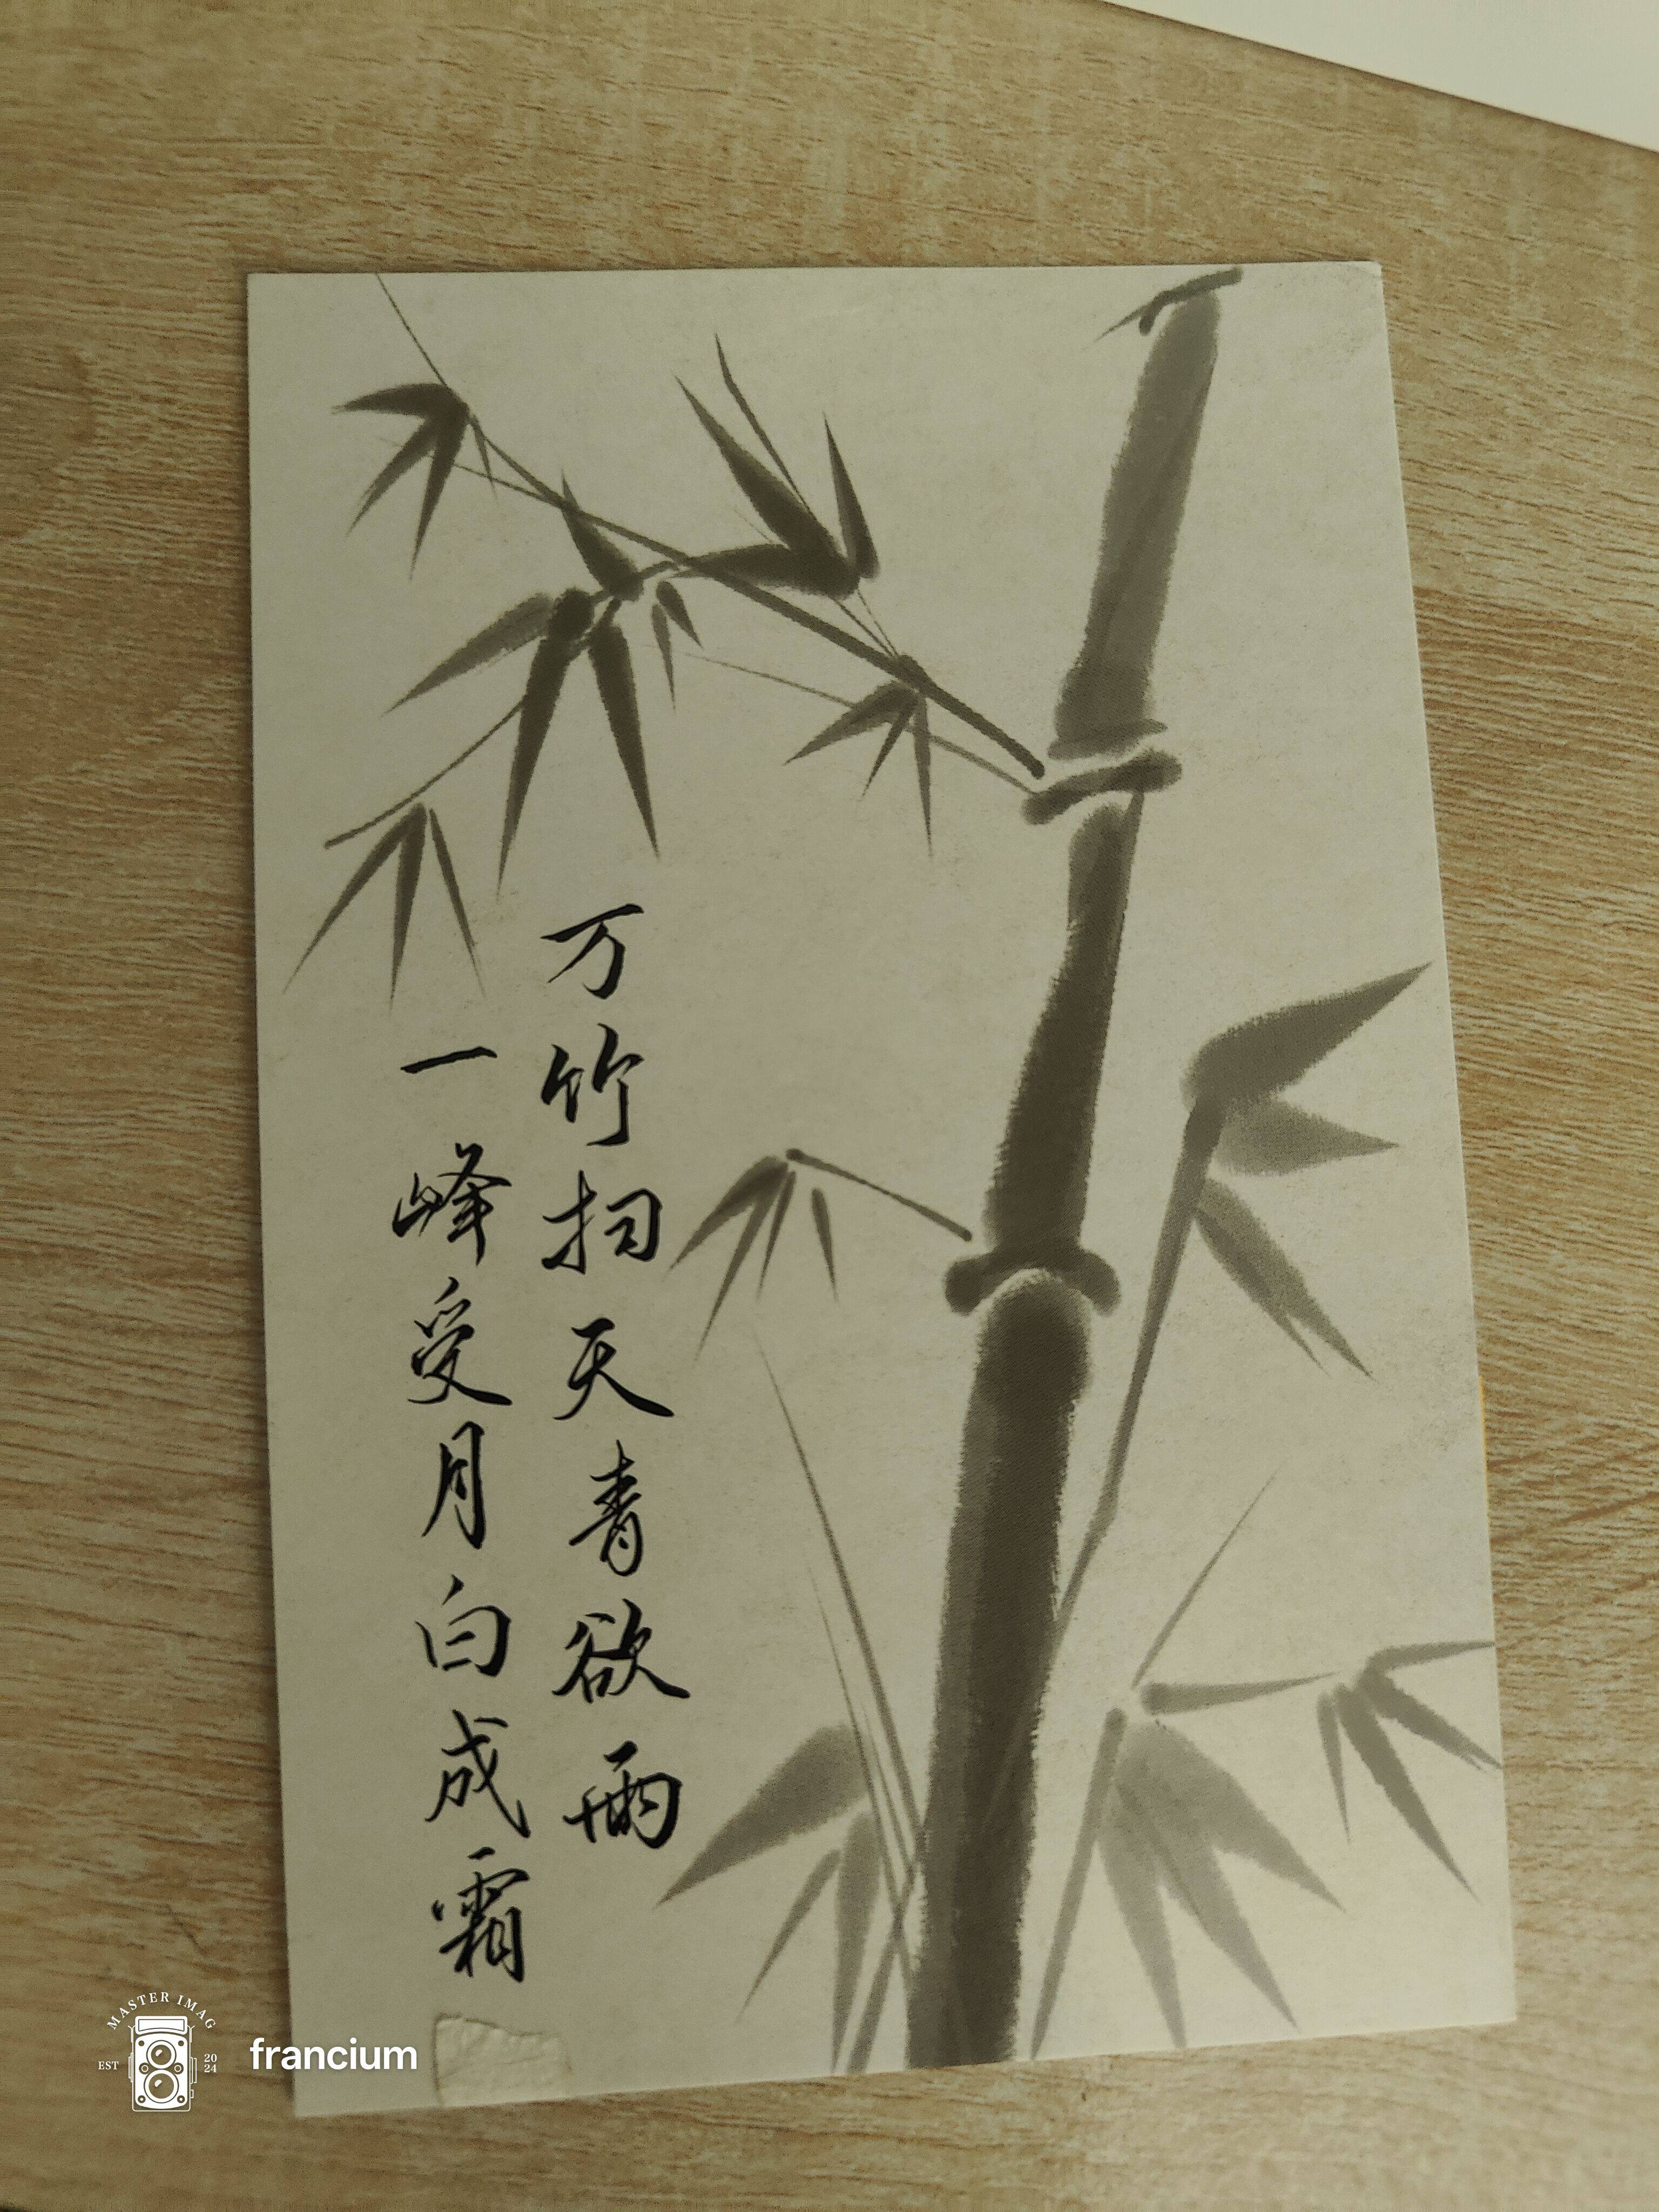 万竹扫天青欲雨
一峰受月白成霜
MASTER IMAG
EST 2024
francium